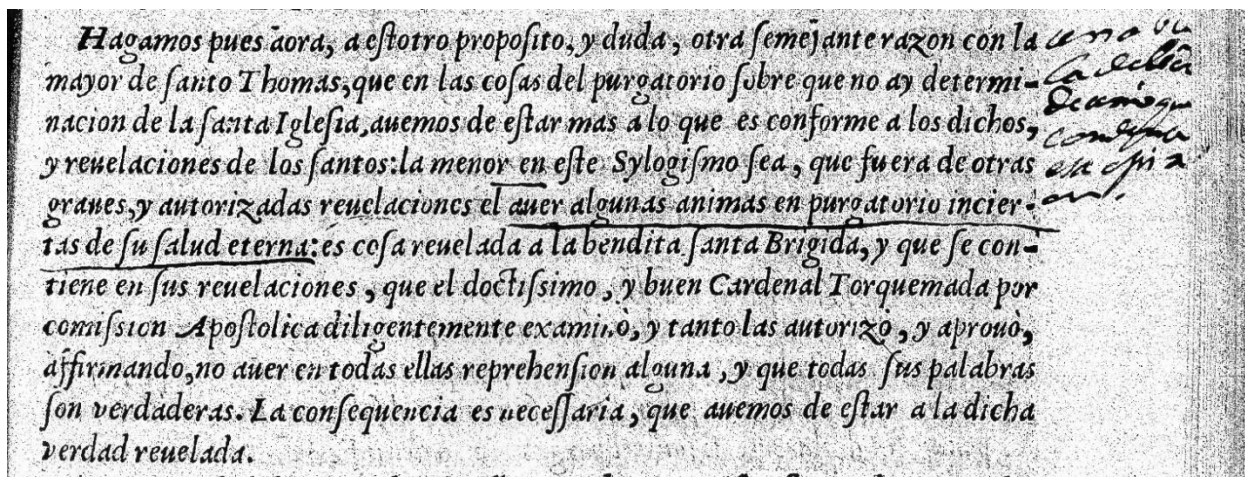 Hagamos pues aora, a eſtotro propoſito, y duda, otra ſemejante razon con la
mayor de ſanto Thomas, que en las coſas del purgatorio ſobre que no ay determi-
nacion de la ſanta Igleſia, auemos de eſtar mas a lo que es conforme a los dichos,
y reuelaciones de los ſantos: la menor en eſte Sylogiſmo ſea, que fuera de otras
graues, y autorizadas reuelaciones el auer algunas animas en purgatorio incier-
tas de ſu ſalud eterna: es coſa reuelada a la bendita ſanta Brigida, y que ſe con-
tiene en ſus reuelaciones, que el doctiſsimo, y buen Cardenal Torquemada por
comiſsion Apoſtolica diligentemente examinò, y tanto las autorizò, y aprouò,
affirmando, no auer en todas ellas reprehenſion alguna, y que todas ſus palabras
ſon verdaderas. La conſequencia es neceſſaria, que auemos de eſtar a la dicha
verdad reuelada.